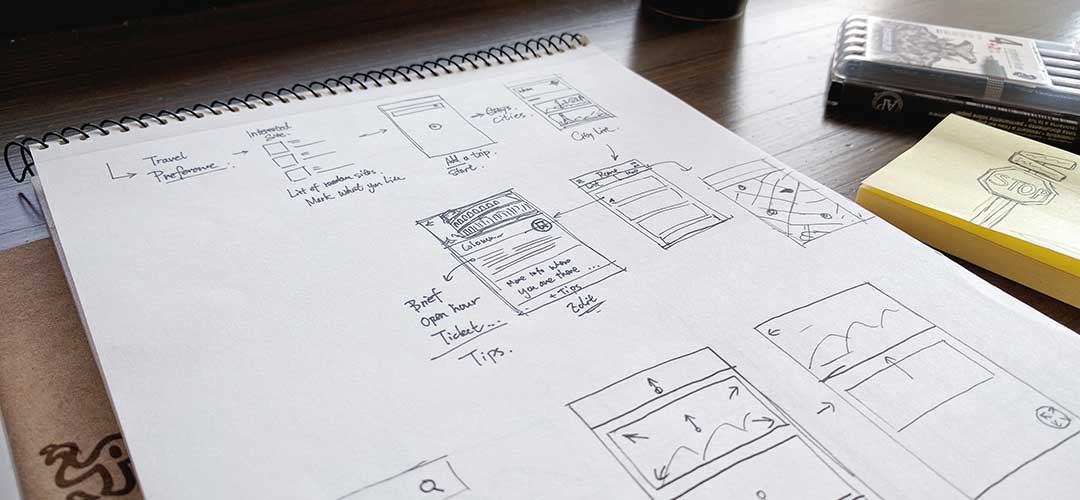 Travel
Preference
Interested
List of random sites
Mark what you like
Add a trip
Start
Cities
City List
Rome
List
Colosseum
More info when
you are there ...
+ Tips
Edit
Brief
Open hour
Ticket ...
Tips.
STOP